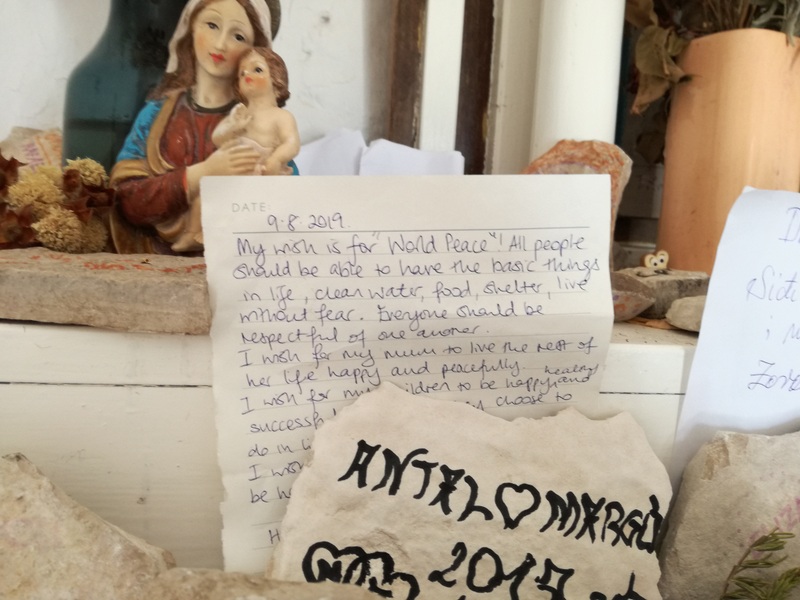 DATE:
9.8.2019.
My wish is for "World Peace"! All people
should be able to have the basic things
in life, clean water, food, shelter, live
without fear. Everyone should be
respectful of one another.
I wish for my mum to live the rest of
her life happy and peacefully
healthy
I wish for my children to be happy and
success choose to
do in
I wish
be
ANTAL♡MARGÓ
2019